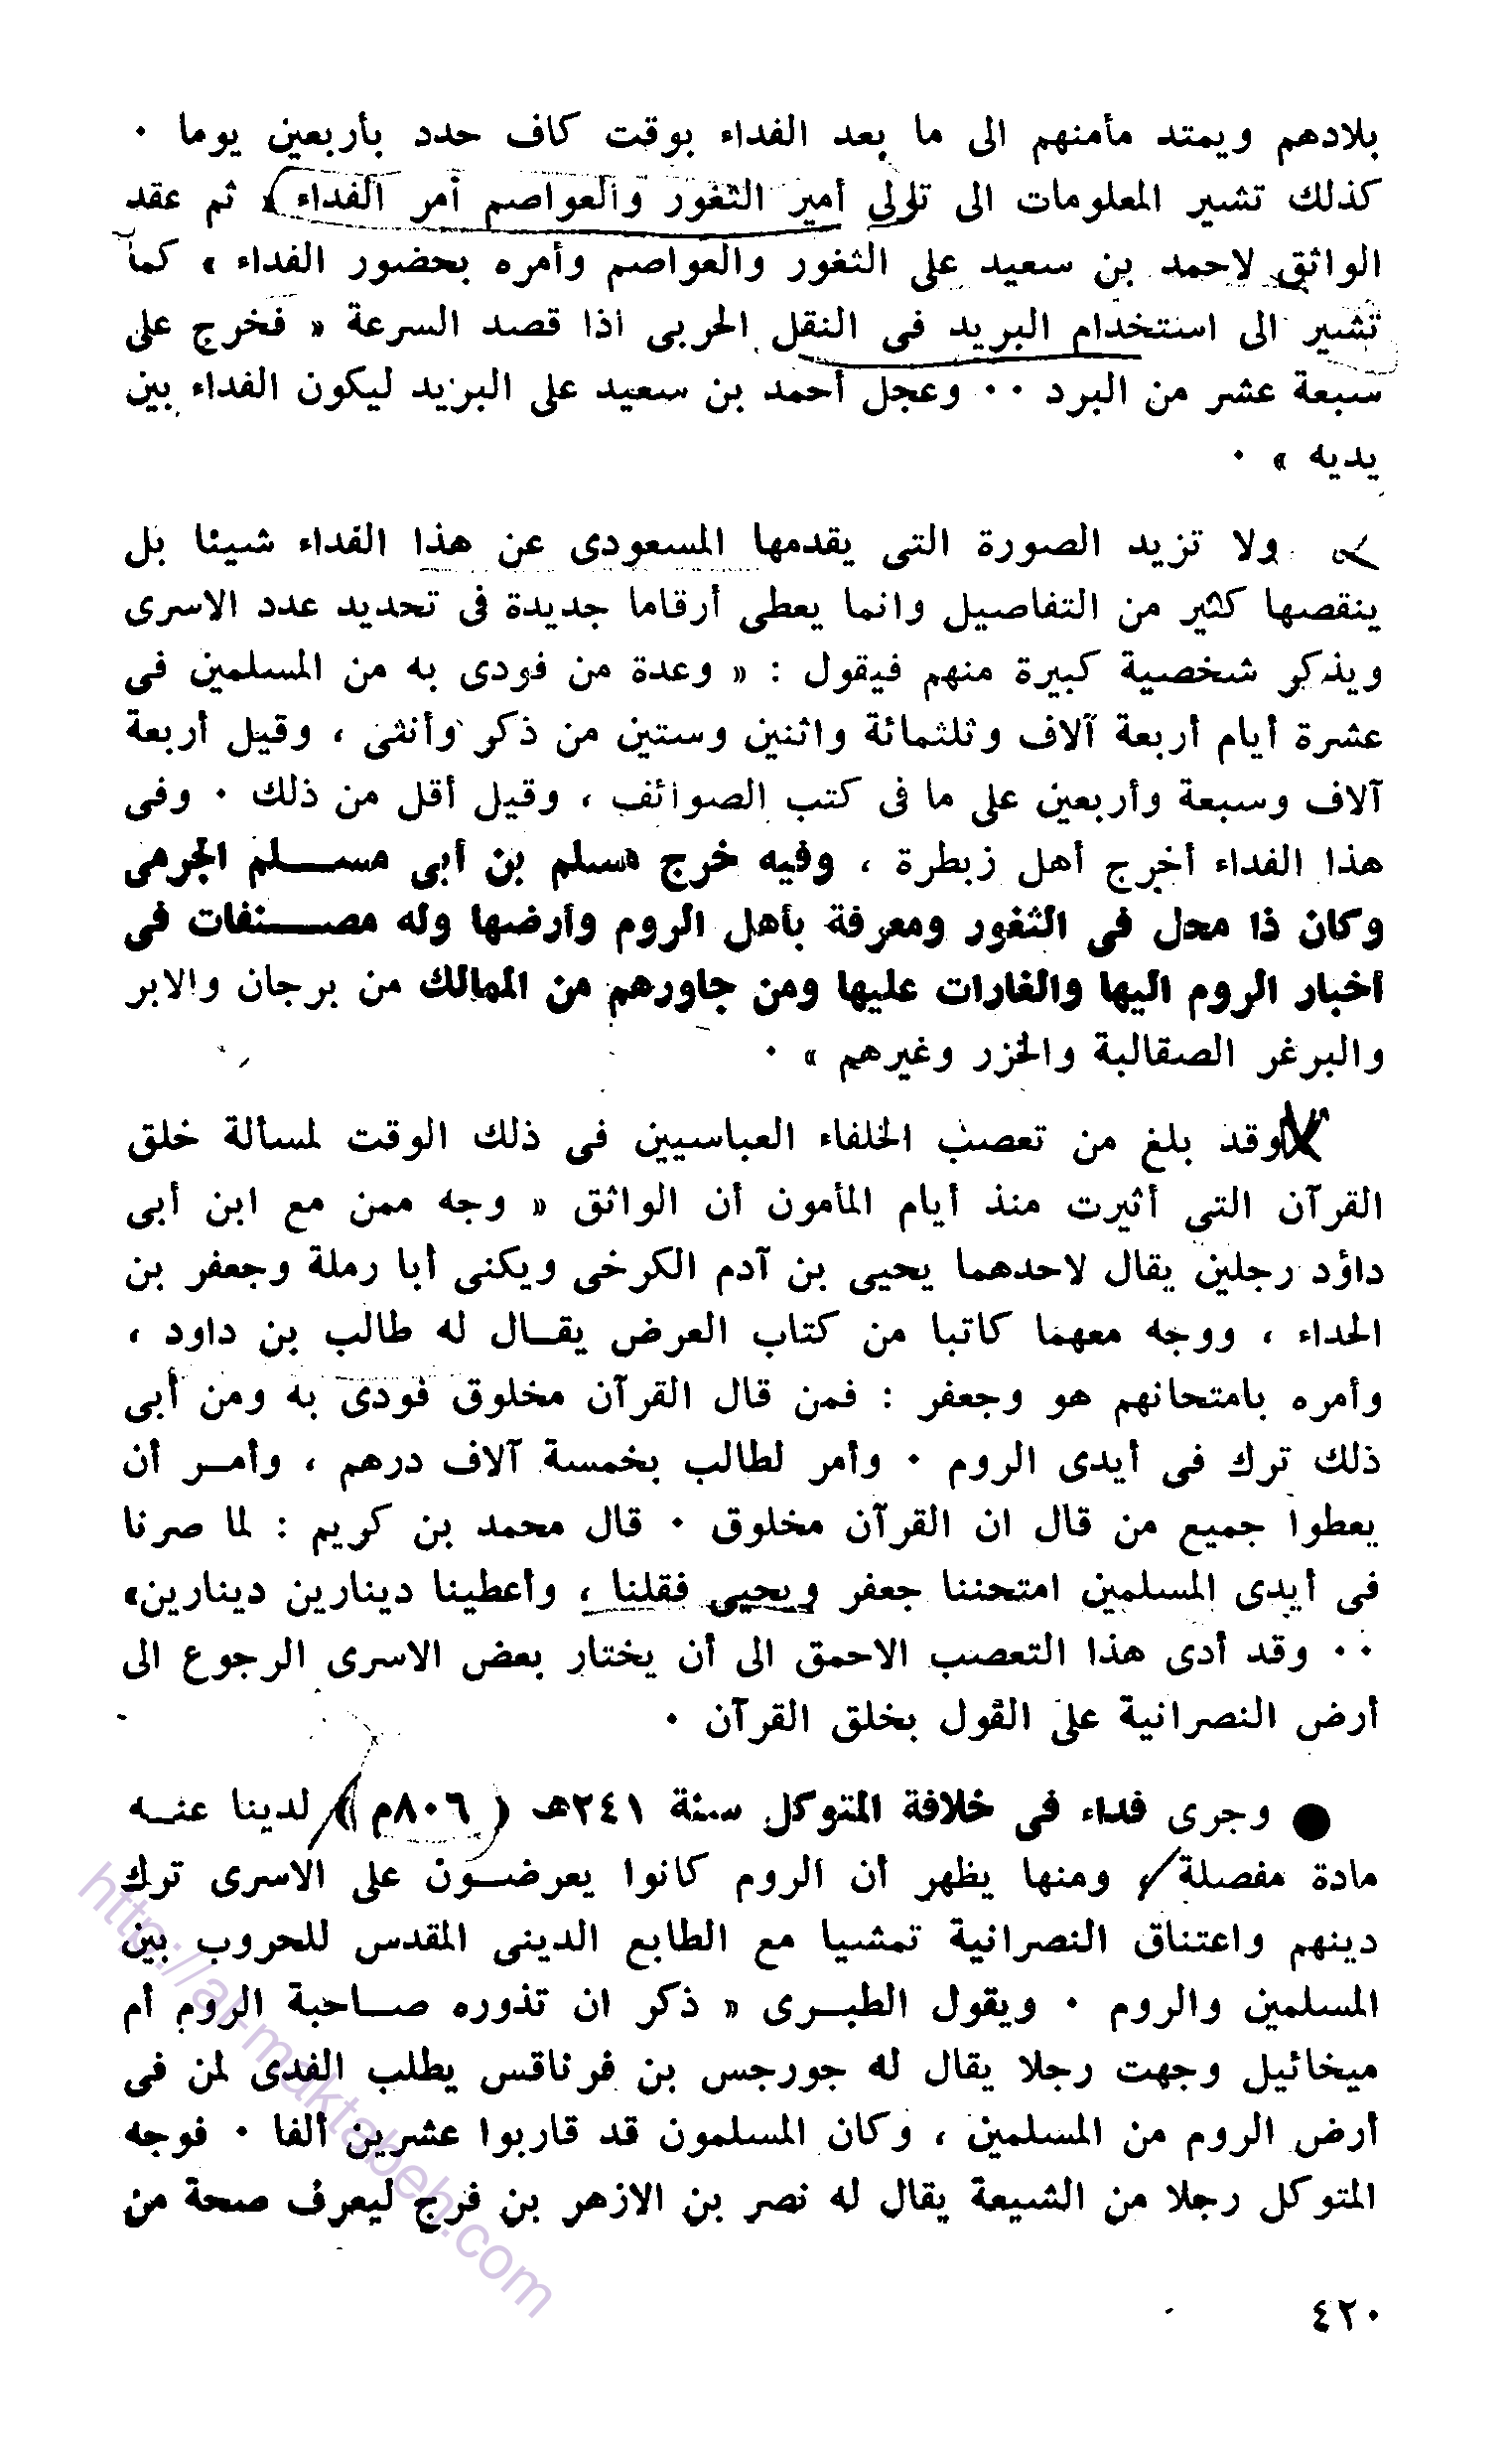 بلادهم ويمتد مأمنهم الى ما بعد الفداء بوقت كاف حدد بأربعين يوما ٠
كذلك تشير المعلومات الى تولى أمير الثغور والعواصم أمر الفداء « ثم عقد
الواثق لاحمد بن سعيد على الثغور والعواصم وأمره بحضور الفداء » كما
تشير الى استخدام البريد فى النقل الحربى اذا قصد السرعة « فخرج على
سبعة عشر من البرد ٠٠ وعجل أحمد بن سعيد على البريد ليكون الفداء بين
يديه » ٠
ولا تزيد الصورة التى يقدمها المسعودى عن هذا الفداء شيئا بل
ينقصها كثير من التفاصيل وانما يعطى أرقاما جديدة فى تحديد عدد الاسرى
ويذكر شخصية كبيرة منهم فيقول : « وعدة من فودى به من المسلمين فى
عشرة أيام أربعة آلاف وثلثمائة واثنين وستين من ذكر وأنثى ، وقيل أربعة
آلاف وسبعة وأربعين على ما فى كتب الصوائف ، وقيل أقل من ذلك ٠ وفى
هذا الفداء أخرج أهل زبطرة ، وفيه خرج مسلم بن أبى مســلم الجرمى
وكان ذا محل فى الثغور ومعرفة بأهل الروم وأرضها وله مصــنفات فى
أخبار الروم اليها والغارات عليها ومن جاورهم من الممالك من برجان والابر
والبرغر الصقالبة والخزر وغيرهم » ٠
وقد بلغ من تعصب الخلفاء العباسيين فى ذلك الوقت لمسألة خلق
القرآن التى أثيرت منذ أيام المأمون أن الواثق « وجه ممن مع ابن أبى
داؤد رجلين يقال لاحدهما يحيى بن آدم الكرخى ويكنى أبا رملة وجعفر بن
الحداء ، ووجه معهما كاتبا من كتاب العرض يقــال له طالب بن داود ،
وأمره بامتحانهم هو وجعفر : فمن قال القرآن مخلوق فودى به ومن أبى
ذلك ترك فى أيدى الروم ٠ وأمر لطالب بخمسة آلاف درهم ، وأمــر أن
يعطوا جميع من قال ان القرآن مخلوق ٠ قال محمد بن كريم : لما صرنا
فى أيدى المسلمين امتحننا جعفر ويحيى فقلنا ، وأعطينا دينارين دينارين»
٠٠ وقد أدى هذا التعصب الاحمق الى أن يختار بعض الاسرى الرجوع الى
أرض النصرانية على القول بخلق القرآن ٠
● وجرى فداء فى خلافة المتوكل سنة ٢٤١هـ ( ٨٠٦م ) لدينا عنــه
مادة مفصلة ، ومنها يظهر أن الروم كانوا يعرضــون على الاسرى ترك
دينهم واعتناق النصرانية تمشيا مع الطابع الدينى المقدس للحروب بين
المسلمين والروم ٠ ويقول الطبــرى « ذكر ان تذوره صــاحبة الروم أم
ميخائيل وجهت رجلا يقال له جورجس بن فرناقس يطلب الفدى لمن فى
أرض الروم من المسلمين ، وكان المسلمون قد قاربوا عشرين ألفا ٠ فوجه
المتوكل رجلا من الشيعة يقال له نصر بن الازهر بن فرج ليعرف صحة من
٤٢٠
http://al-maktabeh.com